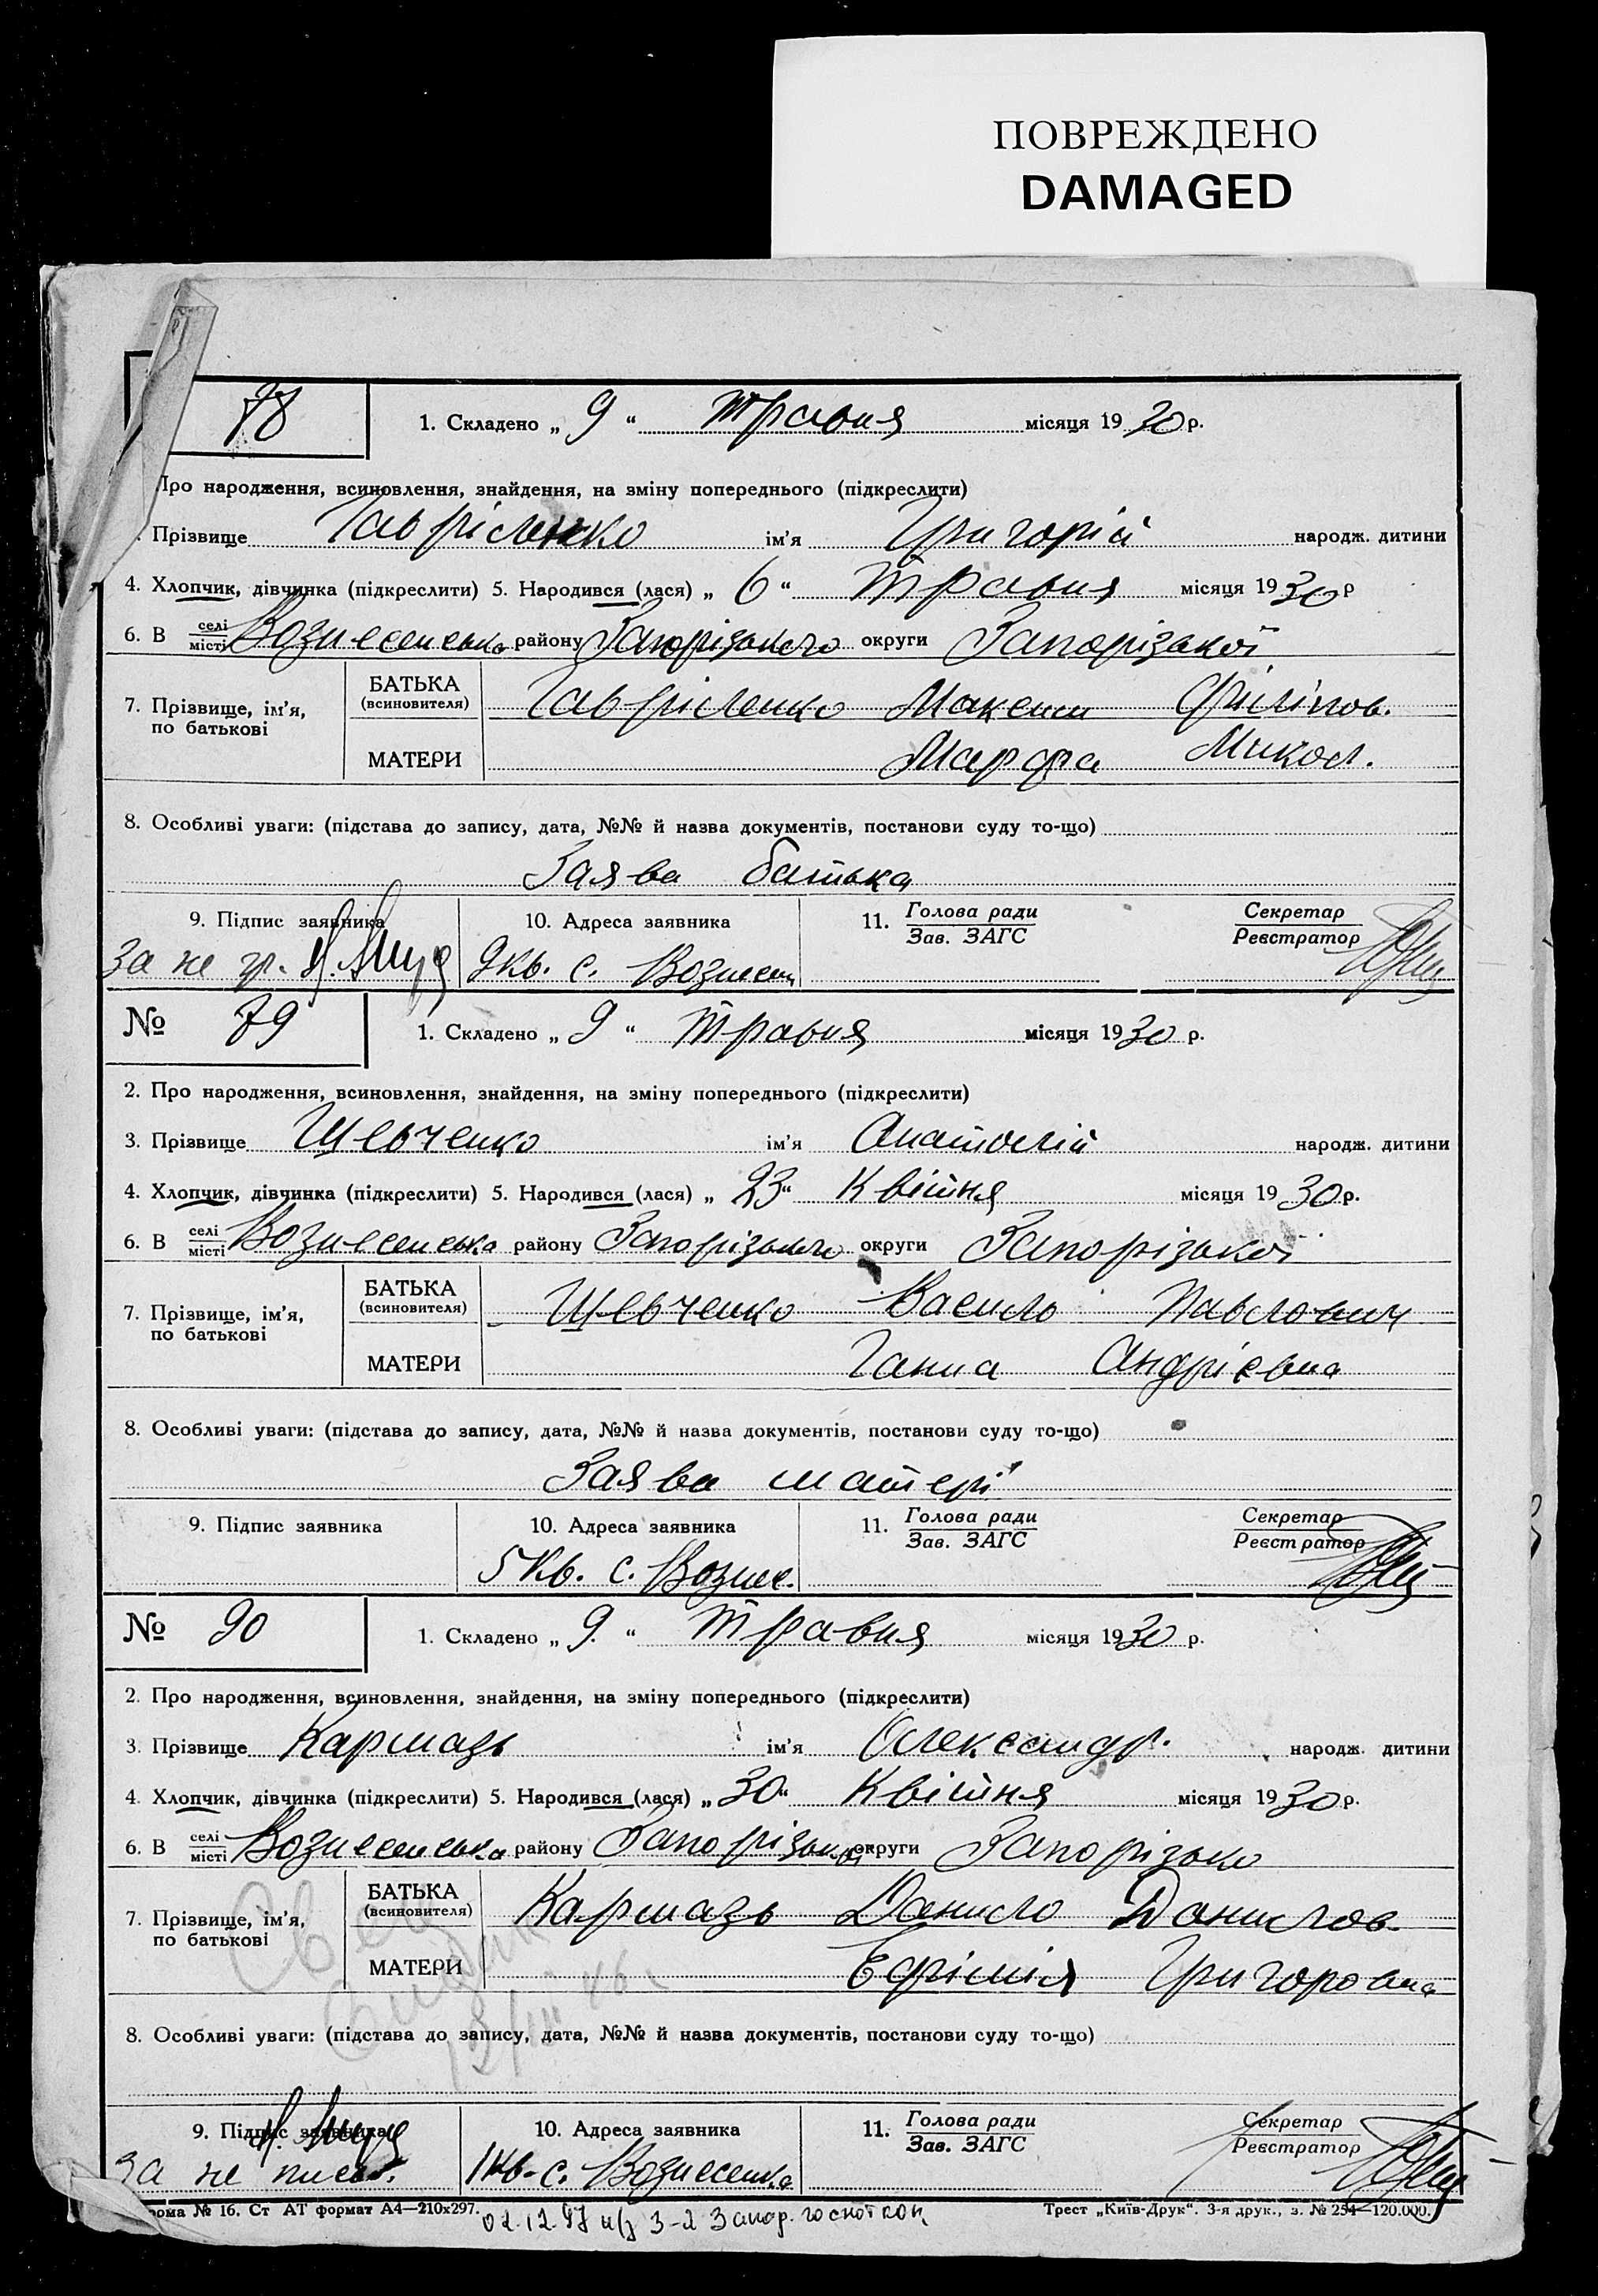 ПОВРЕЖДЕНО
DAMAGED
78
1. Складено „ 9 “ Травня місяця 1930 р.
Про народження, всиновлення, знайдення, на зміну попереднього (підкреслити)
Прізвище Гавріленко ім’я Григорій народж. дитини
4. Хлопчик, дівчинка (підкреслити) 5. Народився (лася) „ 6 “ Травня місяця 1930 р
6. В селі/місті Вознесенська району Запорізького округи Запорізької
7. Прізвище, ім’я, по батькові
БАТЬКА (всиновителя) Гавріленко Максим Філіпов.
МАТЕРИ Марфа Микол.
8. Особливі уваги: (підстава до запису, дата, №№ й назва документів, постанови суду то-що)
Заява батька
9. Підпис заявника 10. Адреса заявника 11. Голова ради/Зав. ЗАГС Секретар/Реєстратор
За не гр. 9 кв. с. Вознесен
№ 79 1. Складено „ 9 “ Травня місяця 1930 р.
2. Про народження, всиновлення, знайдення, на зміну попереднього (підкреслити)
3. Прізвище Шевченко ім’я Анатолій народж. дитини
4. Хлопчик, дівчинка (підкреслити) 5. Народився (лася) „ 23 “ Квітня місяця 1930 р.
6. В селі/місті Вознесенська району Запорізького округи Запорізької
7. Прізвище, ім’я, по батькові
БАТЬКА (всиновителя) Шевченко Василь Павлович
МАТЕРИ Ганна Андрієвна
8. Особливі уваги: (підстава до запису, дата, №№ й назва документів, постанови суду то-що)
Заява матері
9. Підпис заявника 10. Адреса заявника 11. Голова ради/Зав. ЗАГС Секретар/Реєстратор
5 Кв. с. Вознес.
№ 90 1. Складено „ 9. “ Травня місяця 1930 р.
2. Про народження, всиновлення, знайдення, на зміну попереднього (підкреслити)
3. Прізвище Кармазь ім’я Олександр. народж. дитини
4. Хлопчик, дівчинка (підкреслити) 5. Народився (лася) „ 30 “ Квітня місяця 1930 р.
6. В селі/місті Вознесенська району округи Запорізько
7. Прізвище, ім’я, по батькові
БАТЬКА (всиновителя) Кармазь Данило Данилов.
МАТЕРИ Ефімія Григоровна
8. Особливі уваги: (підстава до запису, дата, №№ й назва документів, постанови суду то-що)
9. Підпис заявника 10. Адреса заявника 11. Голова ради/Зав. ЗАГС Секретар/Реєстратор
За не 1 кв. с. Вознесенка
рома № 16. Ст АТ формат А4—210х297. Трест „Київ-Друк“. 3-я друк., з. № 254—120.000.
02.12.97 3-2 Запор.